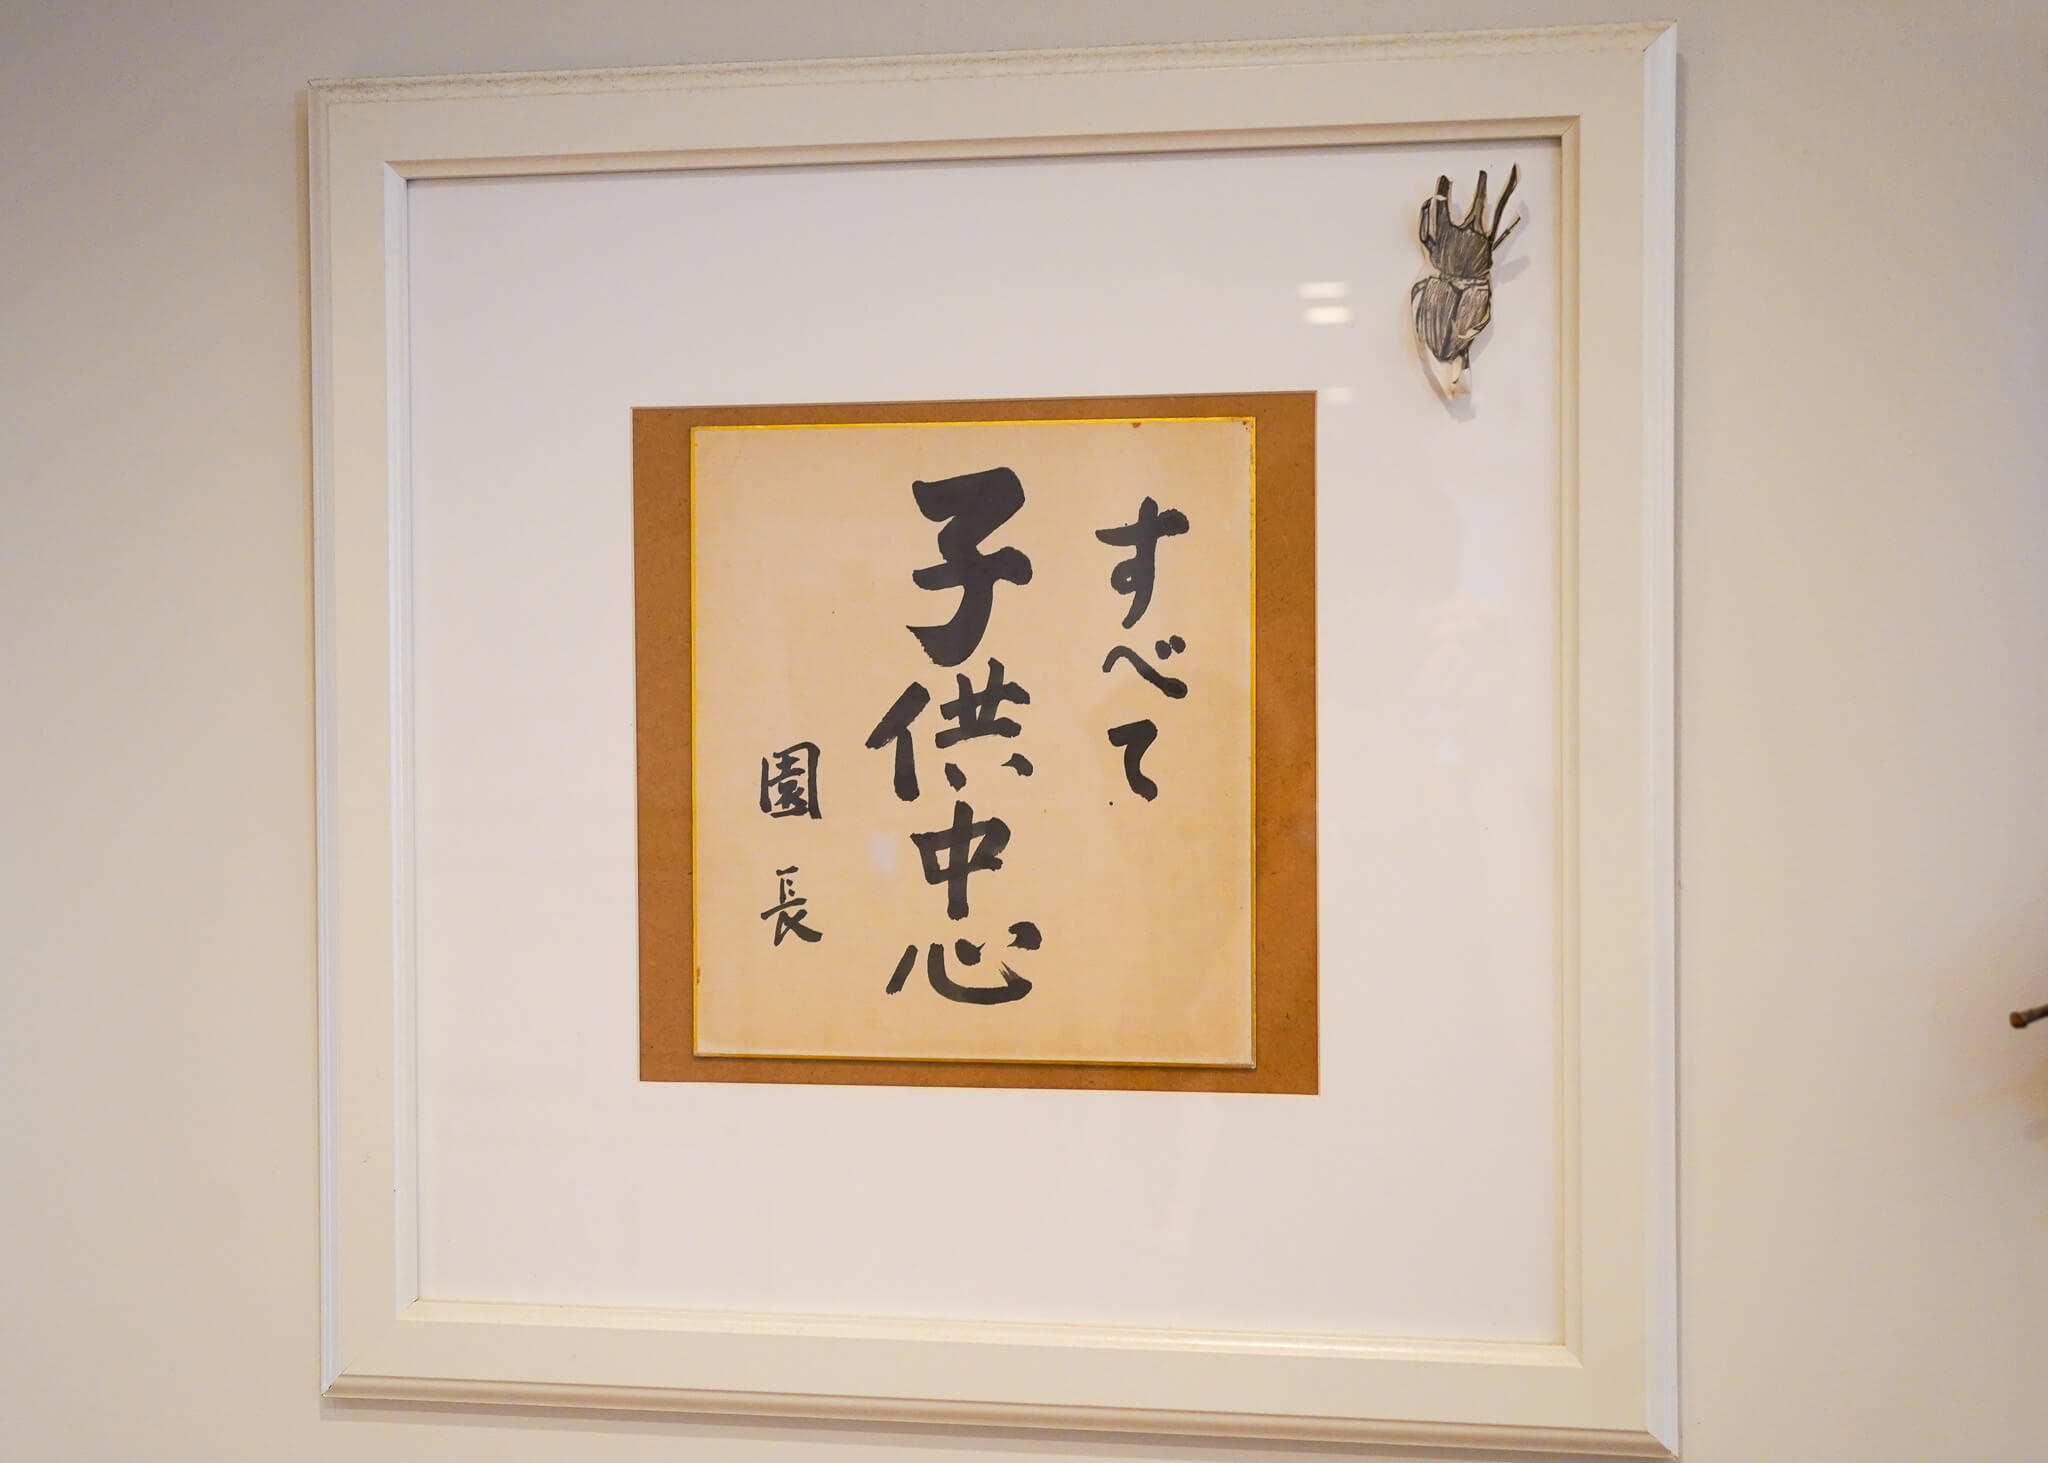 すべて
子供中心
園長